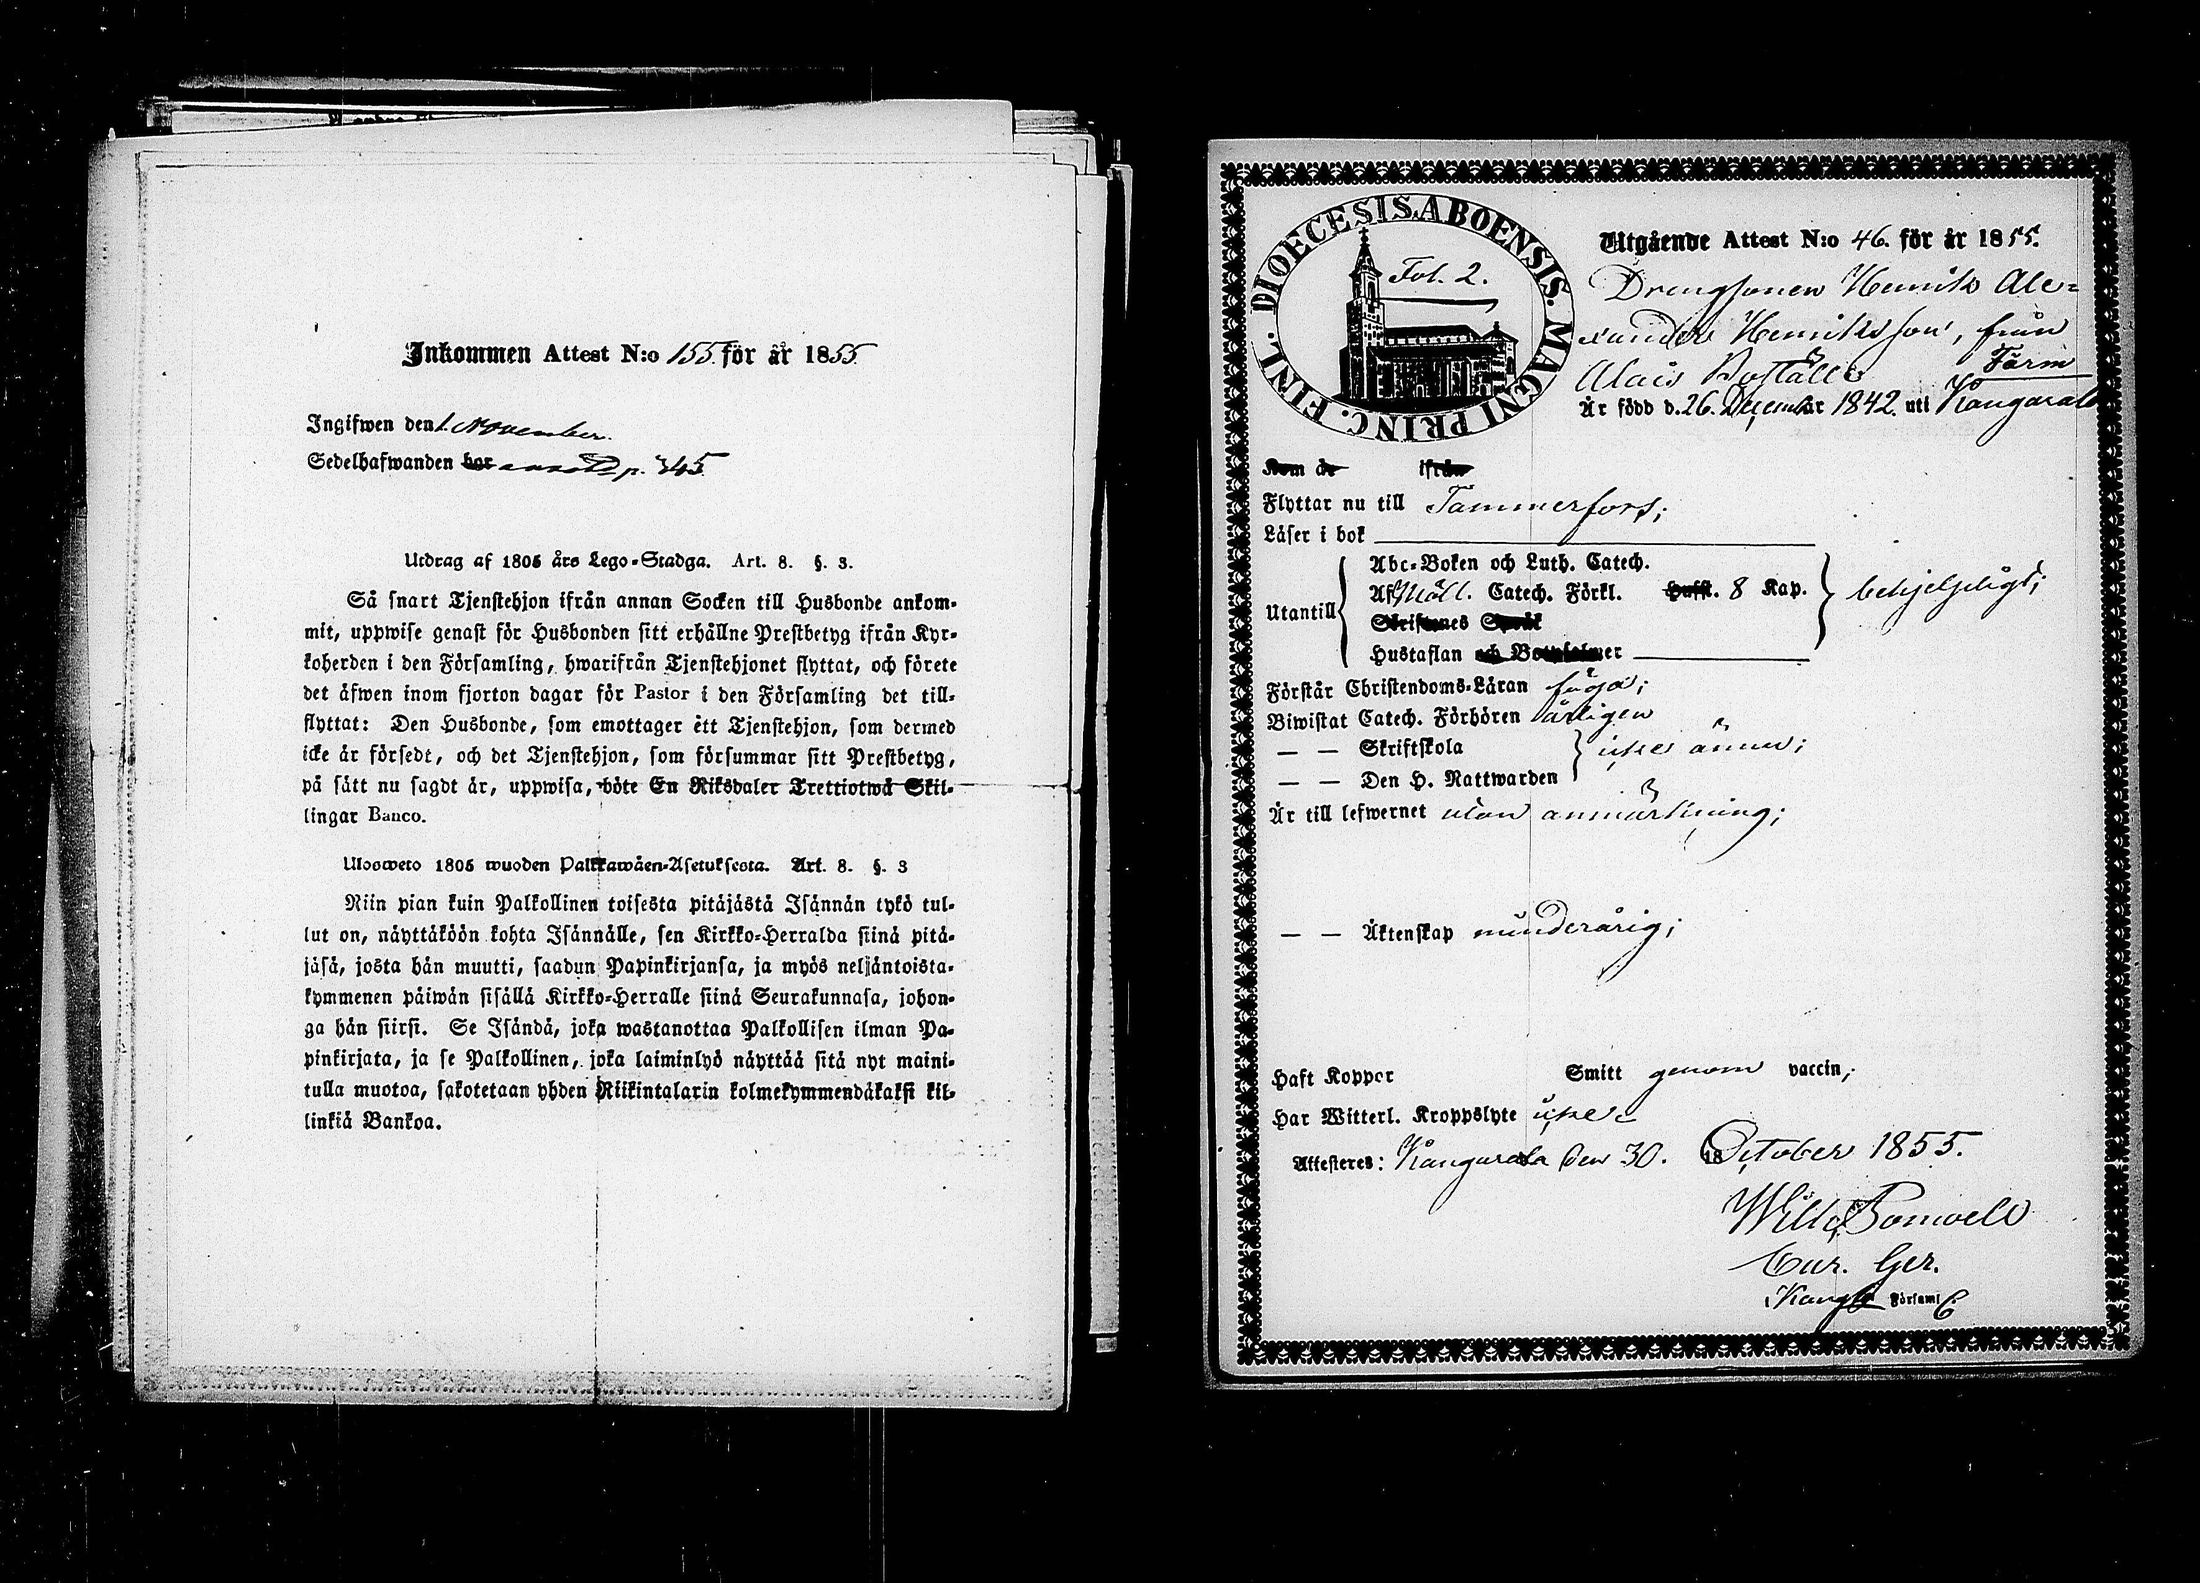 Inkommen Attest N:o 155 för år 1855
Ingifwen den 1. November.
Sedelhafwanden bor p. 345
Utdrag af 1805 års Lego-Stadga. Art. 8. §. 3.
Så snart Tjenstehjon ifrån annan Socken till Husbonde ankom-
mit, uppwise genast för Husbonden sitt erhållne Prestbetyg ifrån Kyr-
koherden i den Församling, hwarifrån Tjenstehjonet flyttat, och förete
det äfwen inom fjorton dagar för Pastor i den Församling det till-
flyttat: Den Husbonde, som emottager ett Tjenstehjon, som dermed
icke är försedt, och det Tjenstehjon, som försummar sitt Prestbetyg,
på sätt nu sagdt är, uppwisa, böte En Riksdaler Trettiotwå Skil-
lingar Banco.
Ulosweto 1805 wuoden Palkkawäen-Asetuksesta. Art. 8. §. 3
Niin pian kuin Palkollinen toisesta pitäjästä Isännän tykö tul-
lut on, näyttäköön kohta Isännälle, sen Kirkko-Herralda siinä pitä-
jäsä, josta hän muutti, saadun Papinkirjansa, ja myös neljäntoista-
kymmenen päiwän sisällä Kirkko-Herralle siinä Seurakunnasa, johon-
ga hän siirsi. Se Isändä, joka wastanottaa Palkollisen ilman Pa-
pinkirjata, ja se Palkollinen, joka laiminlyö näyttää sitä nyt maini-
tulla muotoa, sakotetaan yhden Riikintalarin kolmekymmendäkaksi kil-
linkiä Bankoa.
DIOECESIS. ABOENSIS. MAGNI PRINC. FINL.
Fol. 2.
Utgående Attest N:o 46. för år 1855.
Drengsonen Henrik Ale-
xander Henriksson, från
Alais Boställe
Är född d. 26. December 1842. uti Kangasala
Kom år ifrån
Flyttar nu till Tammerfors;
Läser i bok
Abc-Boken och Luth. Catech.
Af Möll. Catech. Förkl. Hufst. 8 Kap. behjelpligt;
Utantill
Skriftenes Språk
Hustaflan och Botpsalmer
Förstår Christendoms-Läran föga;
Biwistat Catech. Förhören årligen
— — Skriftskola icke ännu;
— — Den H. Nattwarden
Är till lefwernet utan anmärkning;
— — Äktenskap minderårig;
Haft Koppor Smitt genom vaccin;
Har Witterl. Kroppslyte icke
Attesteres: Kangasala den 30. 18 October 1855.
Cur. Ger.
i Församl